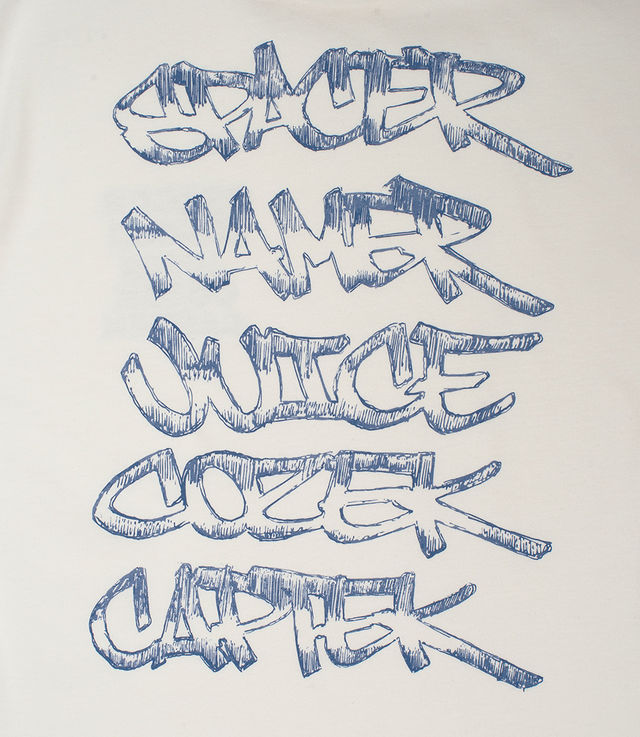 SPACER
NAMER
JUICE
COZEK
CAPTEK